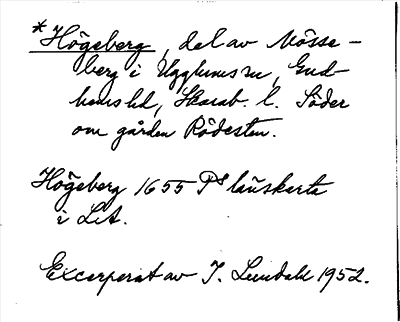 *Högeberg, del av Mösse-
berg i Ugglums sn, Gud-
hems hd, Skarab. l. Söder
om gården Rödesten.
Högeberg 1655 Ps länskarta
i LA.
Excerperat av I. Lundahl 1952.